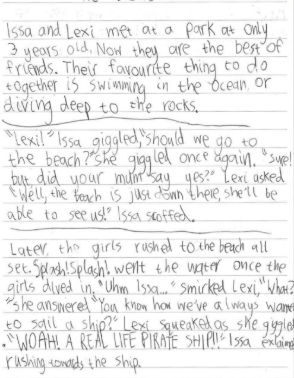 Issa and Lexi met at a park at only
3 years old, Now they are the best of
friends. Their favourite thing to do
together is swimming in the ocean, or
diving deep to the rocks.
"Lexi!" Issa giggled, "should we go to
the beach?" she giggled once again. "Sure!
but did your mum say yes?" Lexi asked
"Well, the beach is just down there, she'll be
able to see us!" Issa scoffed.
Later, the girls rushed to the beach all
set. Splash! Splash! went the water once the
girls dived in. "Uhm Issa..." smirked Lexi, "What?
"she answered "You know how we've always wante
to sail a ship?" Lexi squeaked as she giggled
. "WOAH! A REAL LIFE PIRATE SHIP!!" Issa exlaime
rushing towards the ship.